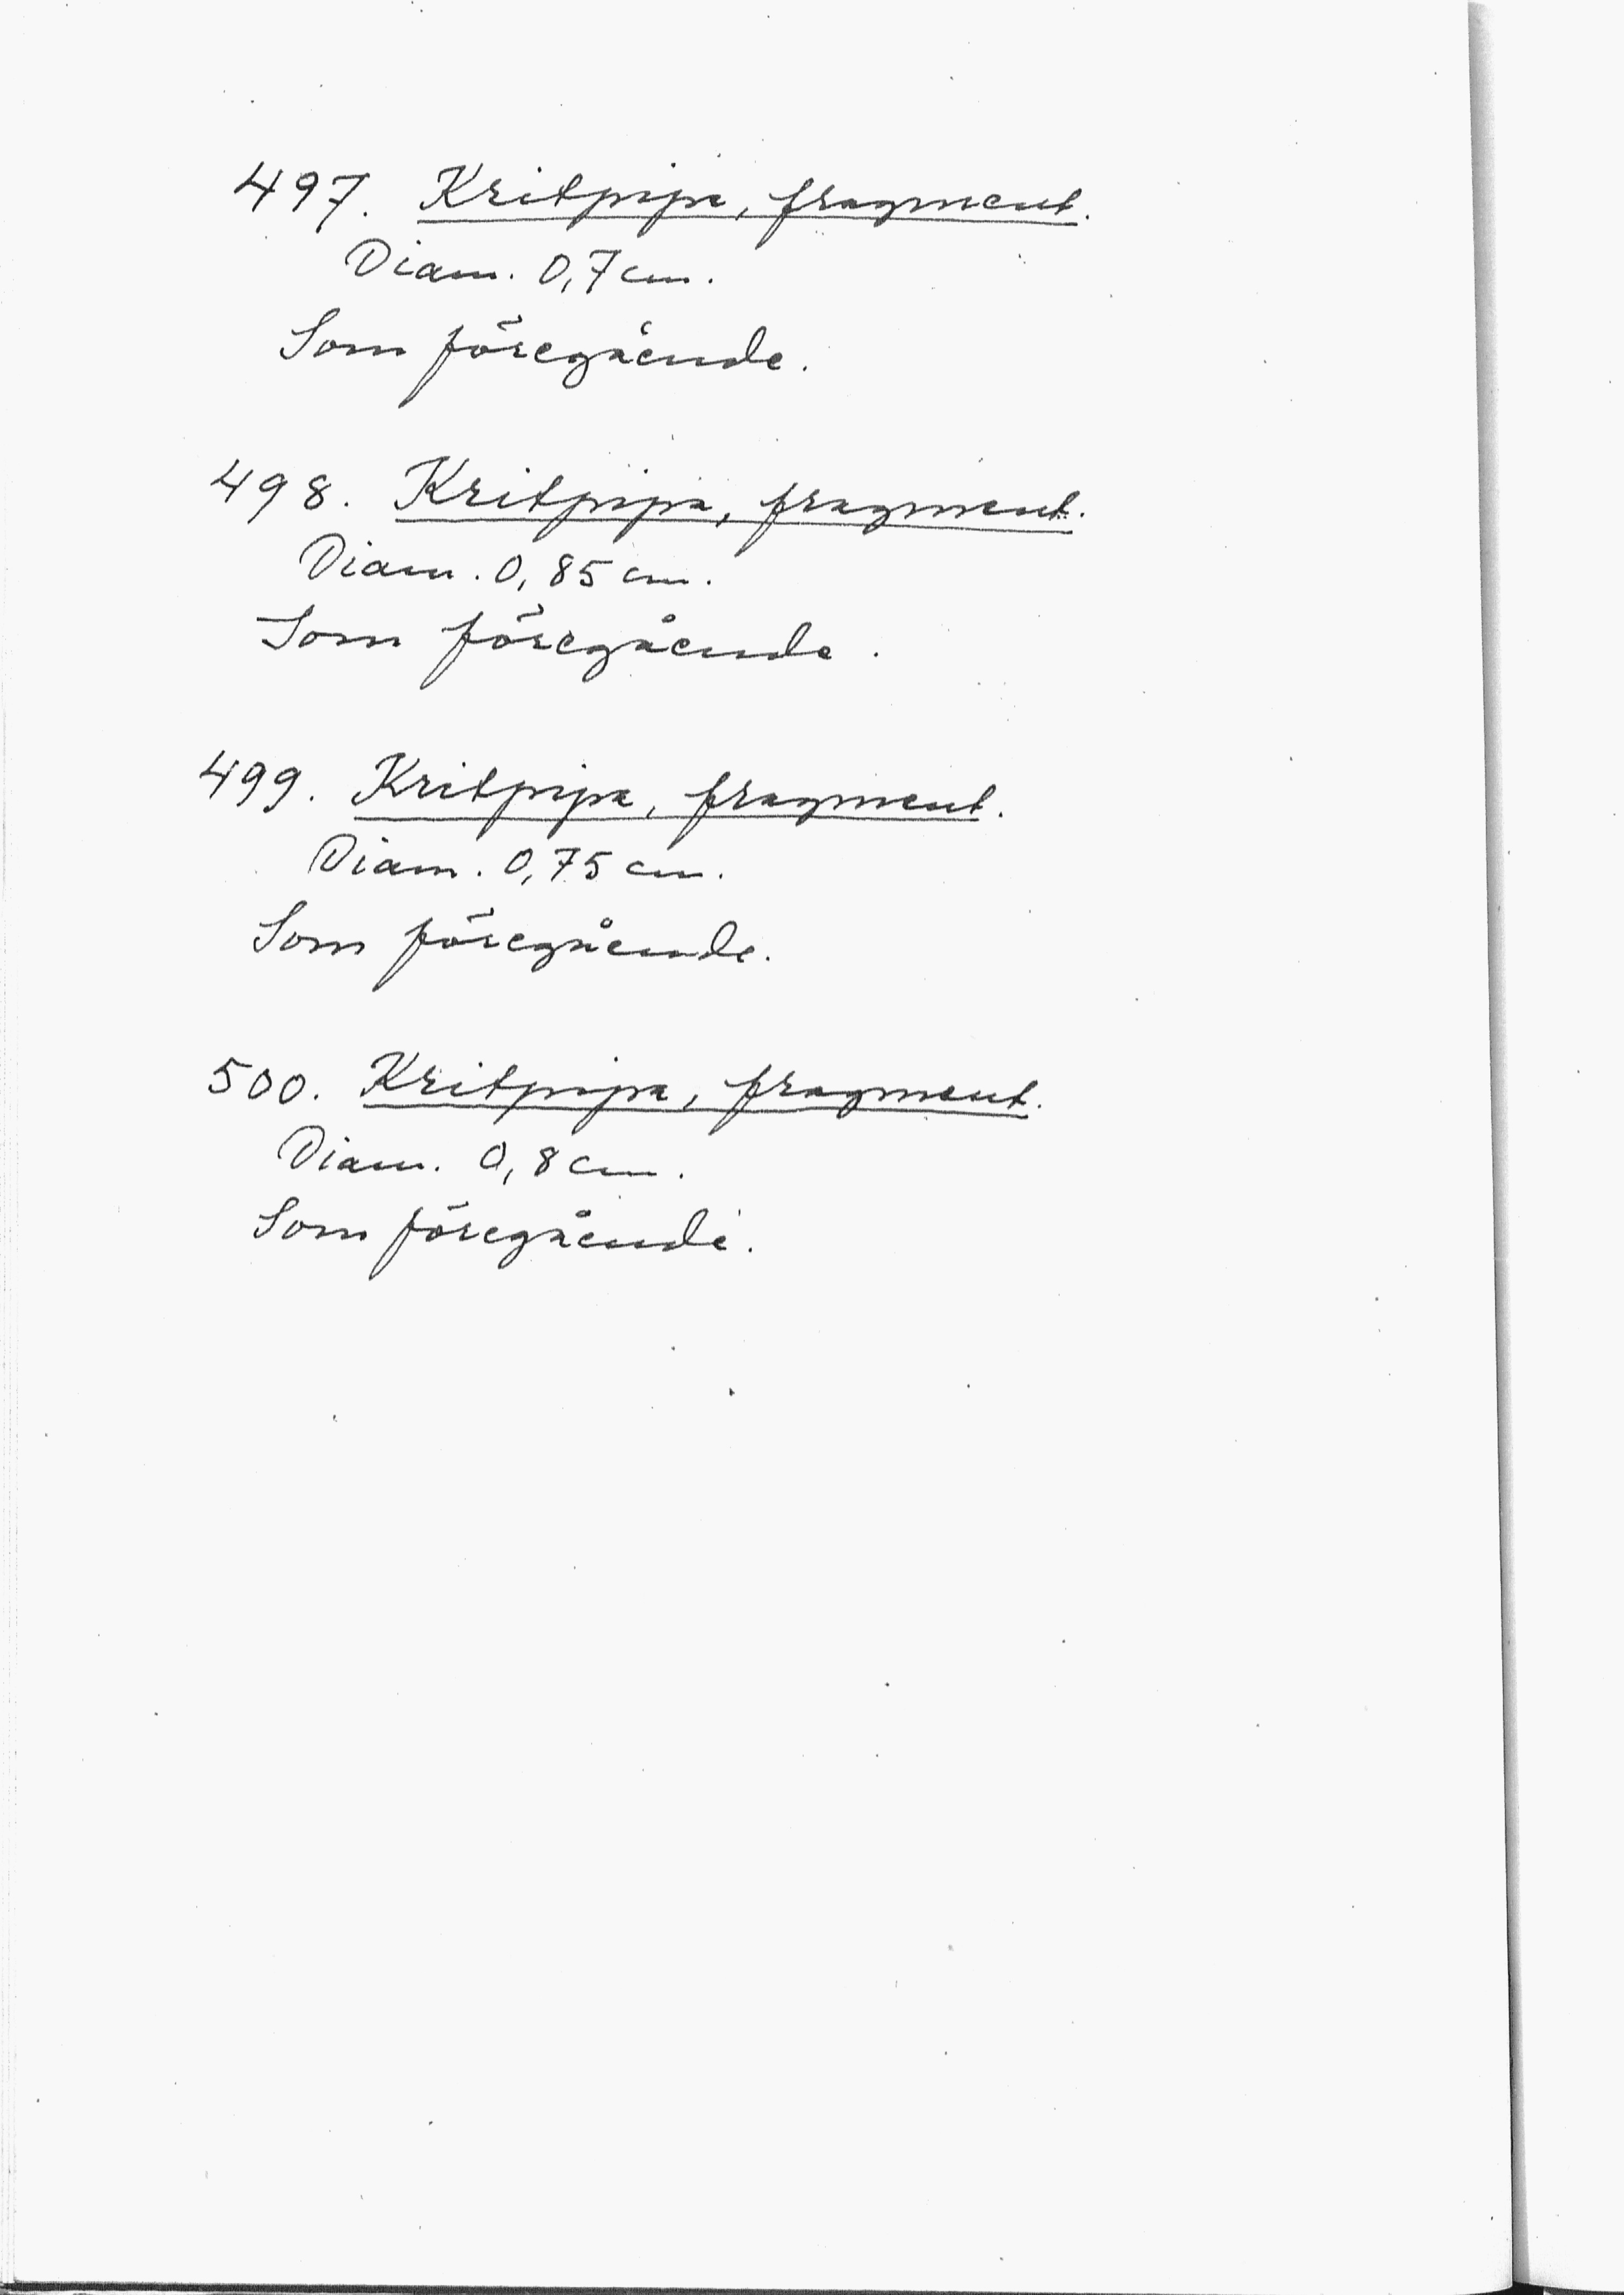 497. Kritpipa, fragment.
Diam. 0,7 cm.
Som föregående.
498. Kritpipa, fragment.
Diam. 0,85 cm.
Som föregående.
499. Kritpipa, fragment.
Diam. 0,75 cm.
Som föregående.
500. Kritpipa, fragment.
Diam. 0,8 cm.
Som föregående.